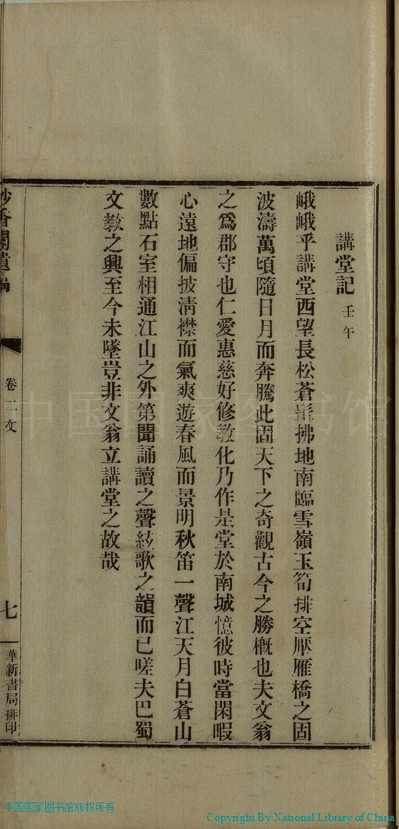 講堂記 壬午
峨峨乎講堂西望長松蒼髯拂地南臨雪嶺玉筍排空厭雁橋之固
波濤萬頃隨日月而奔騰此固天下之奇觀古今之勝概也夫文翁
之爲郡守也仁愛惠慈好修教化乃作是堂於南城憶彼時當閑暇
心遠地偏披淸襟而氣爽遊春風而景明秋笛一聲江天月白蒼山
數點石室相通江山之外第聞誦讀之聲絃歌之韻而已嗟夫巴蜀
文教之興至今未墜豈非文翁立講堂之故哉
香閣遺
卷二文
七
華新書局排印
中国国家图书馆版权所有
Copyright By National Library of China